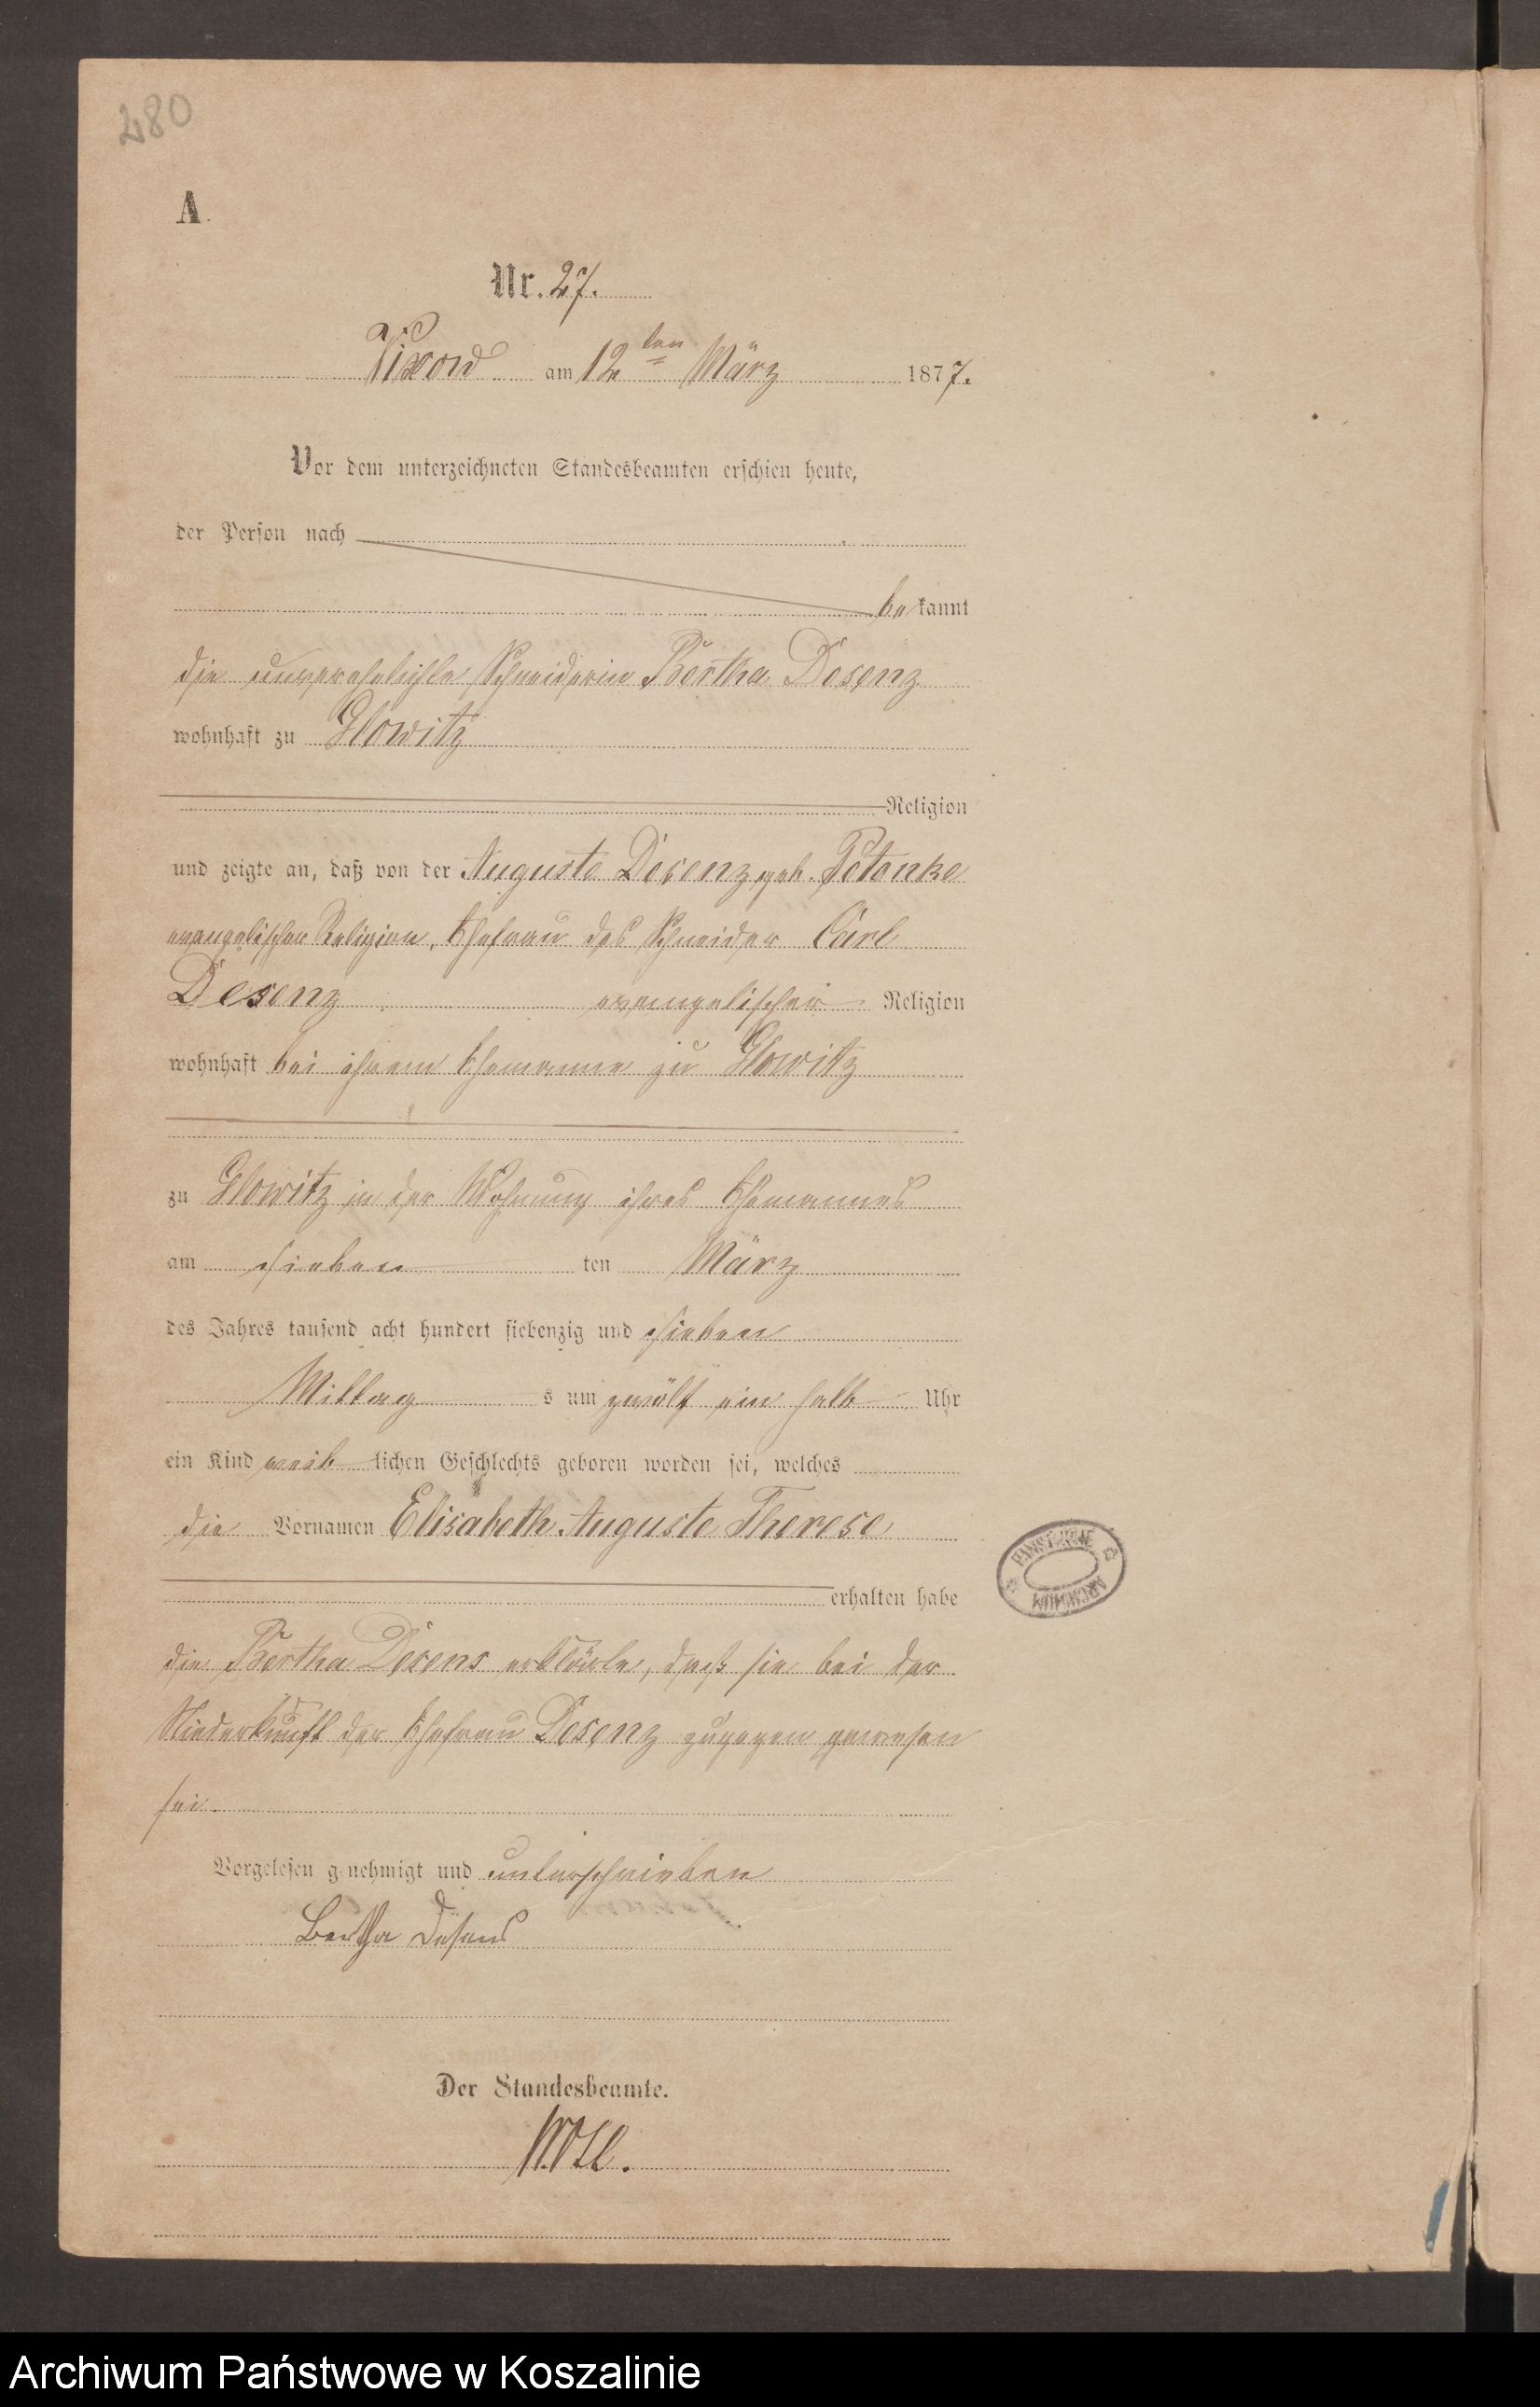 280
A.
Nr. 27.
Vixow am 12ten März 1877.
Vor dem unterzeichneten Standesbeamten erschien heute,
der Person nach
bekannt
die unverehelichte Schneiderin Bertha Desenz
wohnhaft zu Glowitz
Religion
und zeigte an, daß von der Auguste Desenz geb. Potanke
evangelischer Religion, Ehefrau des Schneider Carl
Desenz evangelischer Religion
wohnhaft bei ihrem Ehemanne zu Glowitz
zu Glowitz in der Wohnung ihres Ehemannes
am sieben ten März
des Jahres tausend acht hundert siebenzig und sieben
Mittag s um zwölf ein halb Uhr
ein Kind weib lichen Geschlechts geboren worden sei, welches
die Vornamen Elisabeth Auguste Therese
erhalten habe
die Bertha Desens erklärte, daß sie bei der
Niederkunft der Ehefrau Desenz zugegen gewesen
sei.
Vorgelesen genehmigt und unterschrieben
Bertha Desens
Der Standesbeamte.
PAŃSTWOWE ARCHIWUM
Archiwum Państwowe w Koszalinie